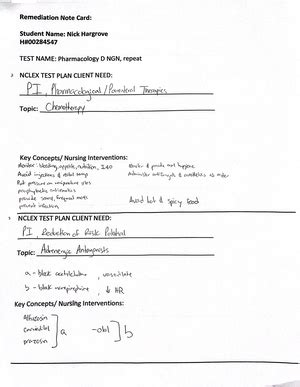 Remediation Note Card:
Student Name: Nick Hargrove
H#00284547
TEST NAME: Pharmacology D NGN, repeat
NCLEX TEST PLAN CLIENT NEED:
PI, Pharmacological/Parenteral Therapies
Topic: Chemotherapy
Key Concepts/ Nursing Interventions:
Monitor: bleeding, appetite, nutrition, I&O
Avoid injections & rectal temp
Put pressure on venipuncture sites
prophylactic antiemetics
provide small, frequent meals
prevent infection
provide oral hygiene
Avoid hot & spicy food
NCLEX TEST PLAN CLIENT NEED:
PI Reduction of Risk Potential
Topic: Adrenergic Antagonists
a - block acetylcholine, vasodilate
b - block norepinephrine, ↓ HR
Key Concepts/ Nursing Interventions:
Alfuzosin
carvedilol
prazosin
a
-olol
b